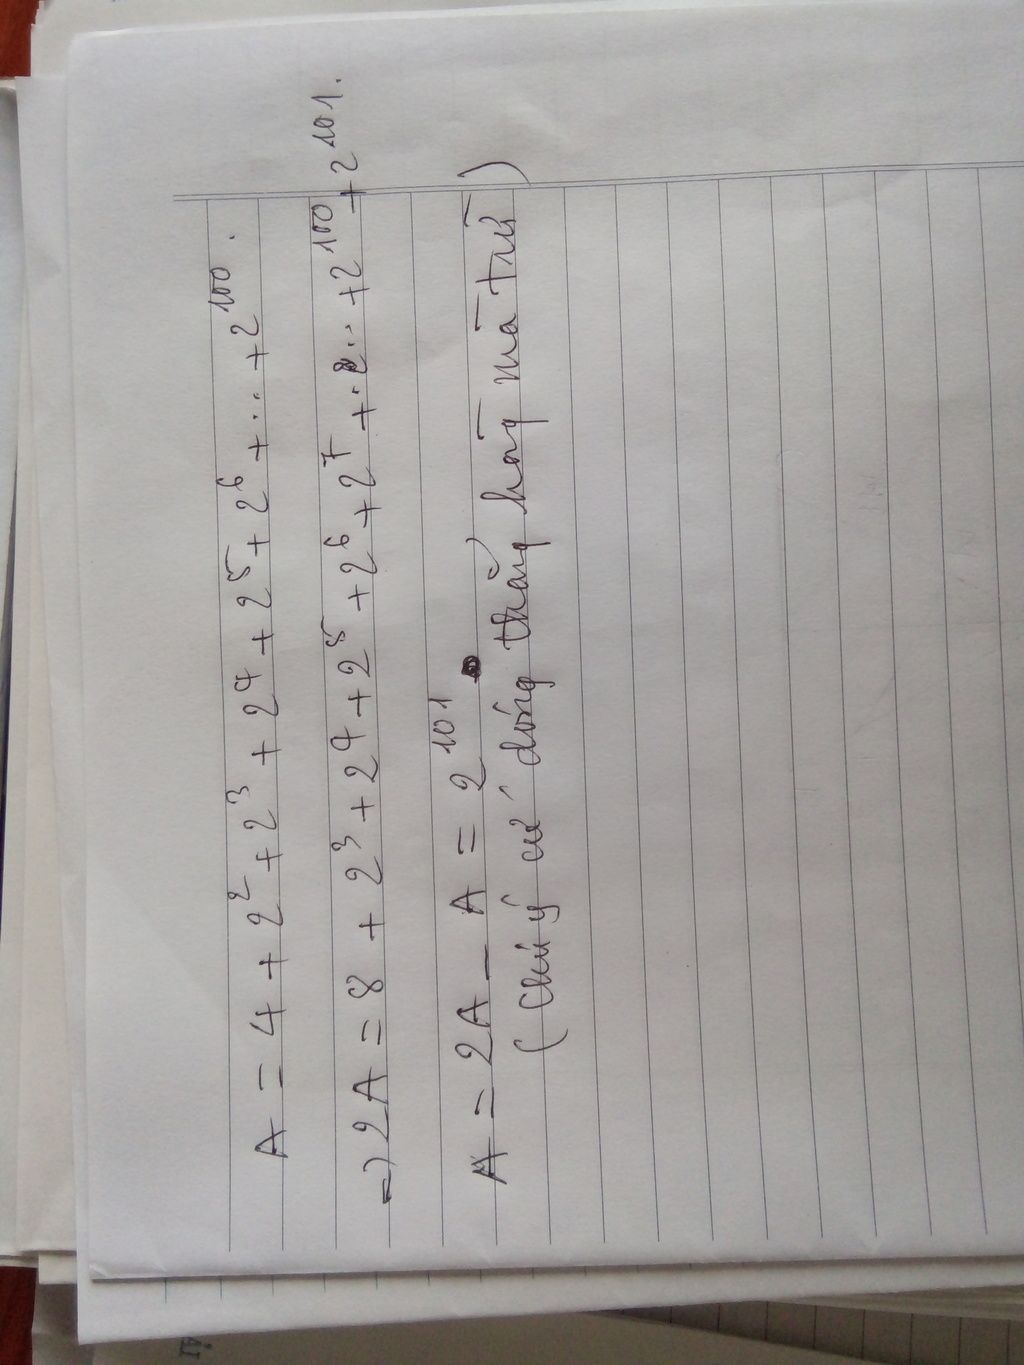 A = 4 + 2² + 2³ + 2⁴ + 2⁵ + 2⁶ + ... + 2¹⁰⁰.
=> 2A = 8 + 2³ + 2⁴ + 2⁵ + 2⁶ + 2⁷ + ... + 2¹⁰⁰ + 2¹⁰¹.
A = 2A - A = 2¹⁰¹
(chú ý cứ dóng thẳng hàng mà trừ)